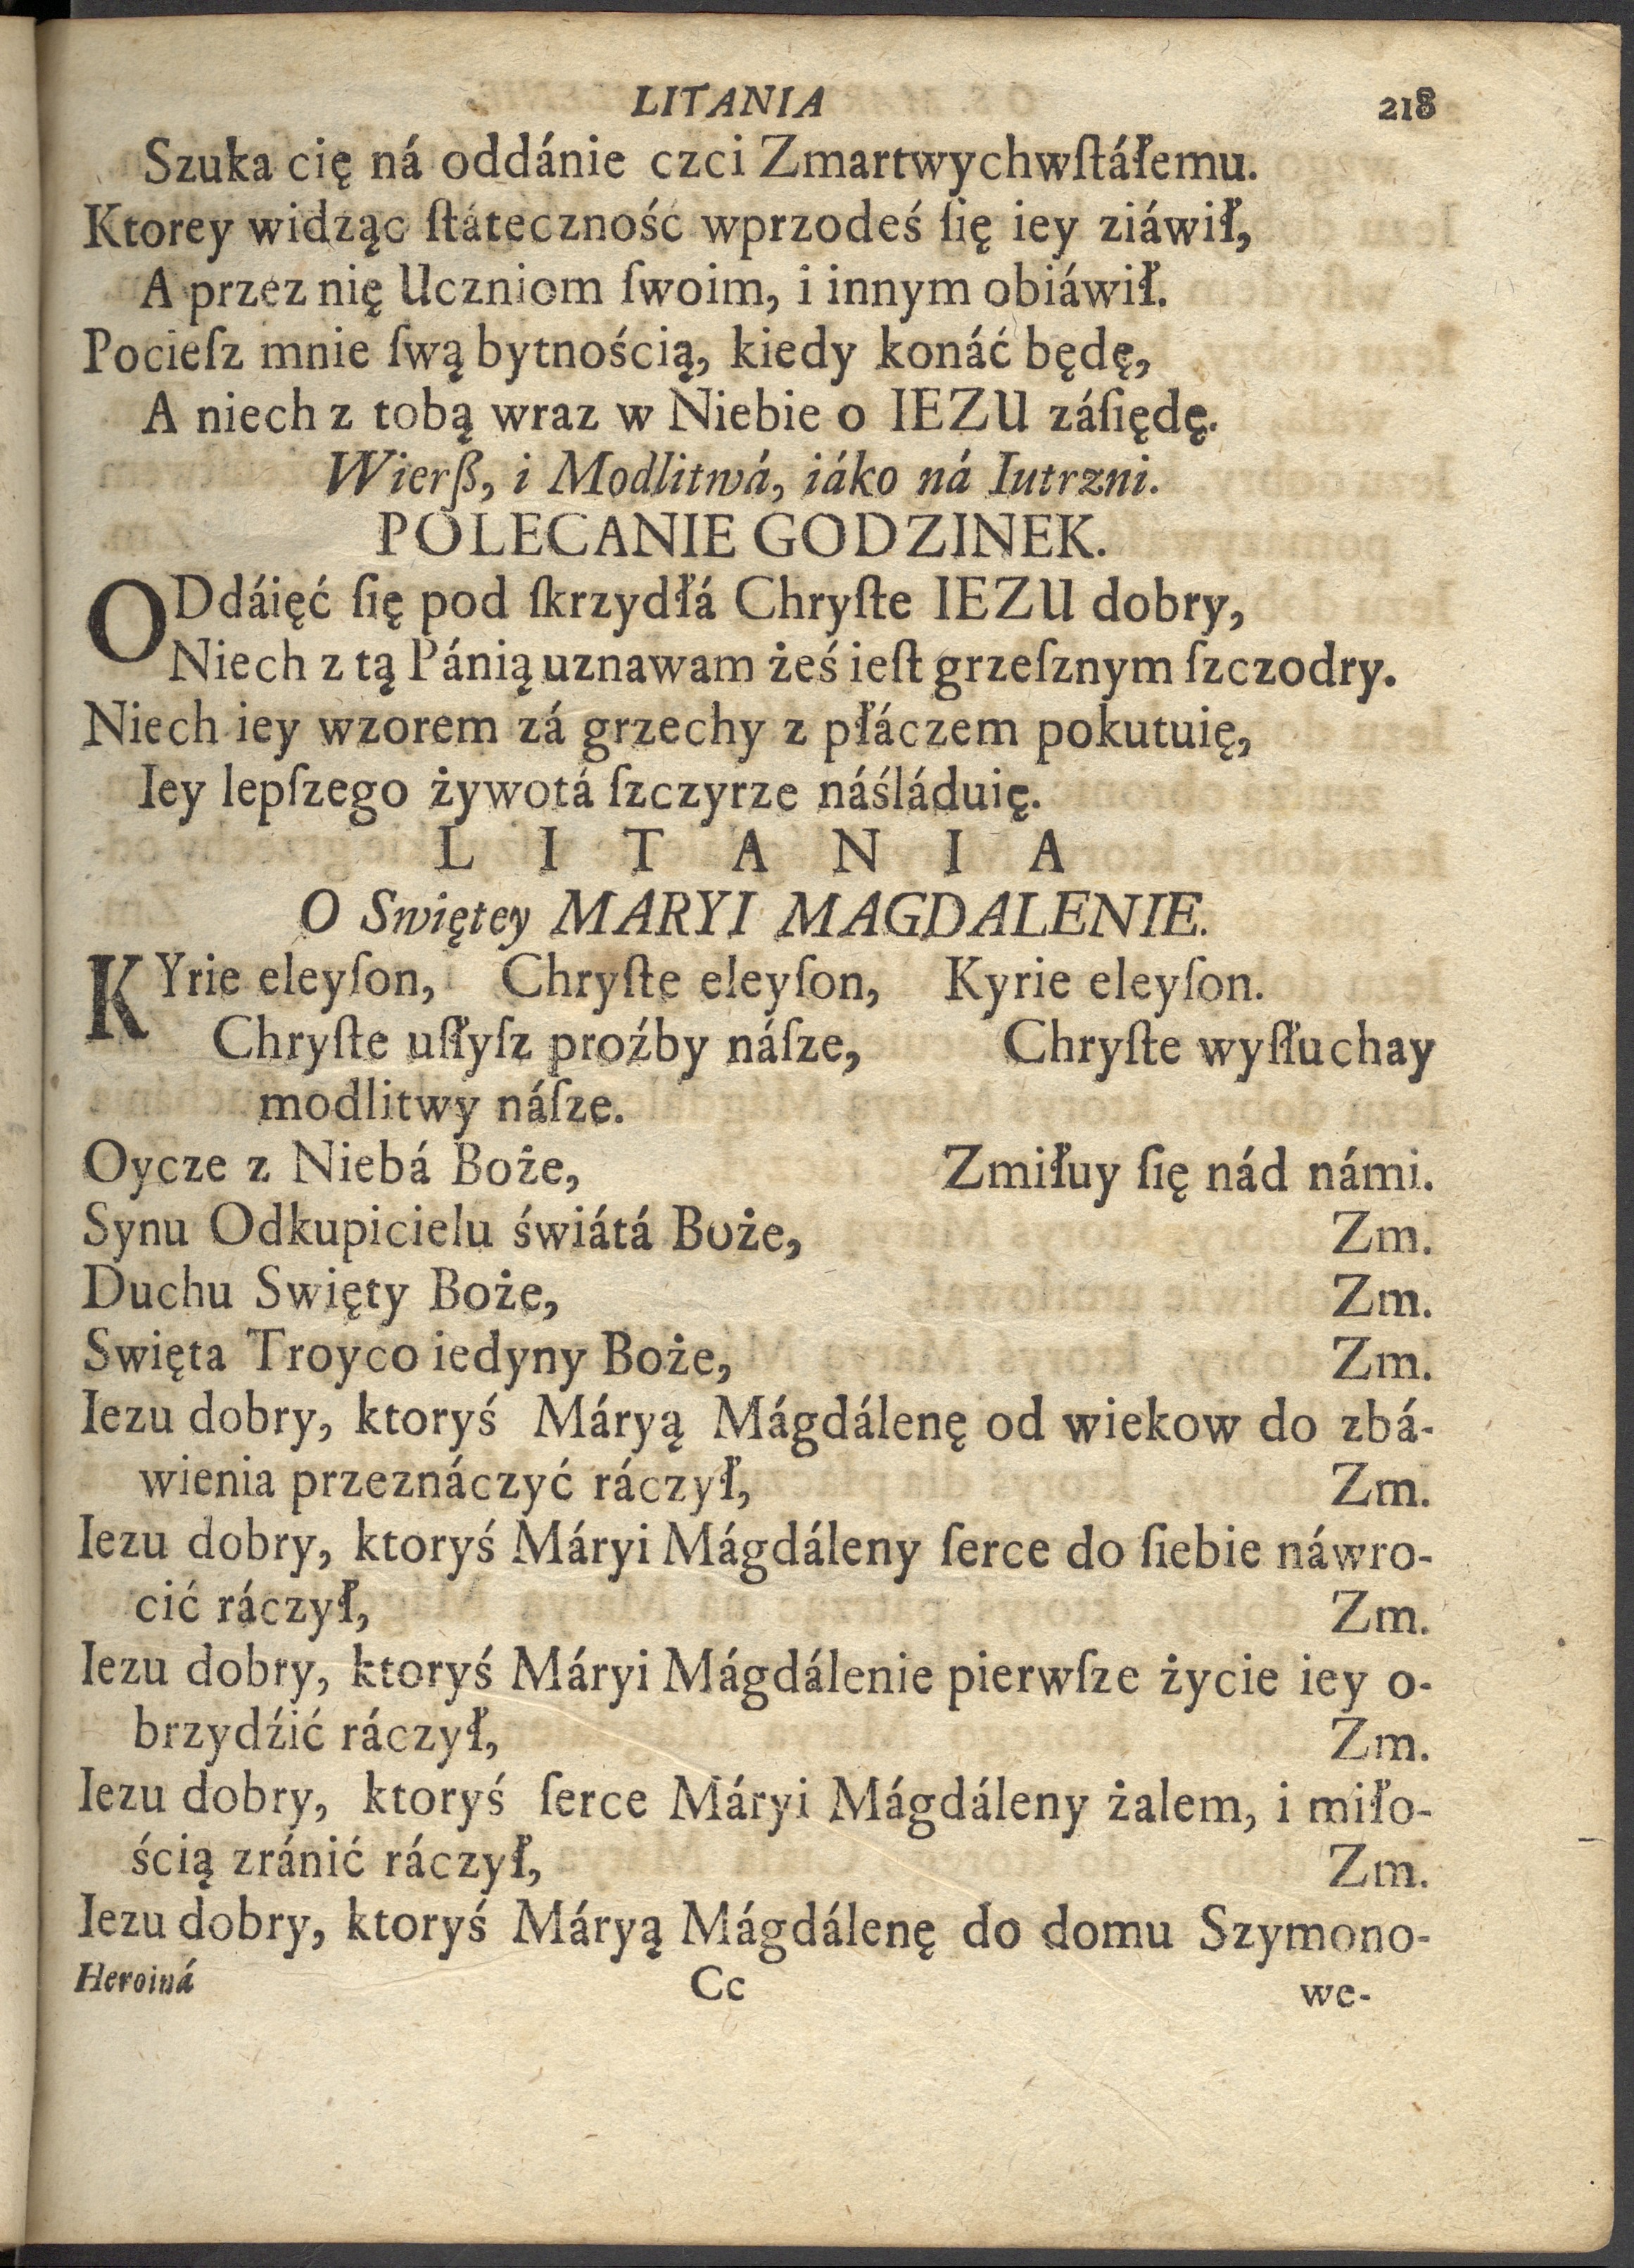 LITANIA 218
Szuka cię ná oddánie czci Zmartwychwſtáłemu.
Ktorey widząc ſtáteczność wprzodeś ſię iey ziáwił,
A przez nię Uczniom ſwoim, i innym obiáwił.
Pocieſz mnie ſwą bytnością, kiedy konáć będę,
A niech z tobą wraz w Niebie o IEZU záſiędę.
Wierß, i Modlitwá, iáko ná Iutrzni.
POLECANIE GODZINEK.
ODdáięć ſię pod ſkrzydłá Chryſte IEZU dobry,
Niech z tą Pánią uznawam żeś ieſt grzeſznym ſzczodry.
Niech iey wzorem zá grzechy z płáczem pokutuię,
Iey lepſzego żywotá ſzczyrze náśláduię.
L I T A N I A
O Swiętey MARYI MAGDALENIE.
KYrie eleyſon, Chryſte eleyſon, Kyrie eleyſon.
Chryſte uſłyſz proźby náſze, Chryſte wyſłuchay
modlitwy náſze.
Oycze z Niebá Boże, Zmiłuy ſię nád námi.
Synu Odkupicielu świátá Boże, Zm.
Duchu Swięty Boże, Zm.
Swięta Troyco iedyny Boże, Zm.
Iezu dobry, ktoryś Máryą Mágdálenę od wiekow do zbá-
wienia przeznáczyć ráczył, Zm.
Iezu dobry, ktoryś Máryi Mágdáleny ſerce do ſiebie náwro-
cić ráczył, Zm.
Iezu dobry, ktoryś Máryi Mágdálenie pierwſze życie iey o-
brzydźić ráczył, Zm.
Iezu dobry, ktoryś ſerce Máryi Mágdáleny żalem, i miło-
ścią zránić ráczył, Zm.
Iezu dobry, ktoryś Máryą Mágdálenę do domu Szymono-
Heroiná Cc we-